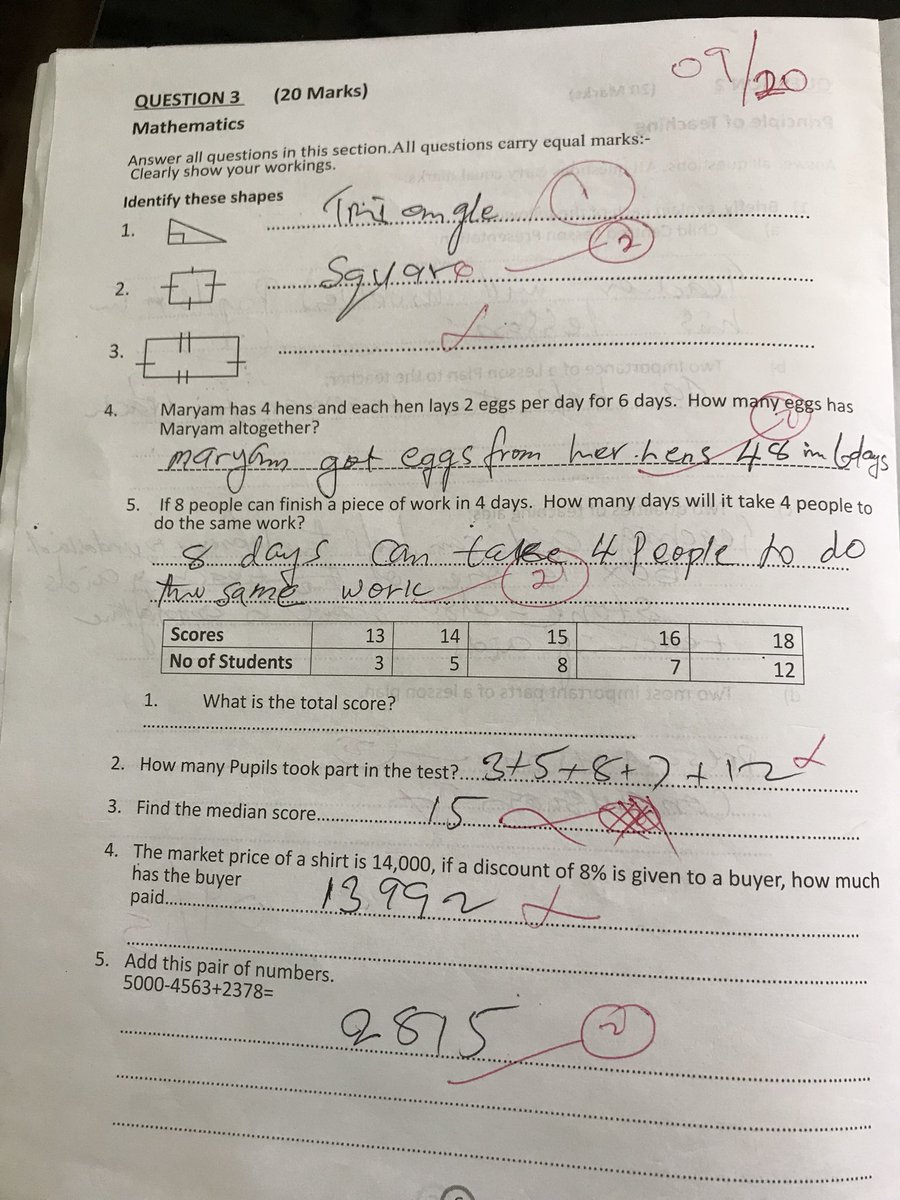 09/20
QUESTION 3 (20 Marks)
Mathematics
Answer all questions in this section.All questions carry equal marks:-
Clearly show your workings.
Identify these shapes
1. Triangle 1
2. Square 2
3.
4. Maryam has 4 hens and each hen lays 2 eggs per day for 6 days. How many eggs has
Maryam altogether? 2
maryam got eggs from her hens 48 in 6days
5. If 8 people can finish a piece of work in 4 days. How many days will it take 4 people to
do the same work?
8 days can take 4 people to do
the same work 2
Scores 13 14 15 16 18
No of Students 3 5 8 7 12
1. What is the total score?
2. How many Pupils took part in the test? 3+5+8+7+12
3. Find the median score 15
4. The market price of a shirt is 14,000, if a discount of 8% is given to a buyer, how much
has the buyer
paid 13992
5. Add this pair of numbers.
5000-4563+2378=
2815 2